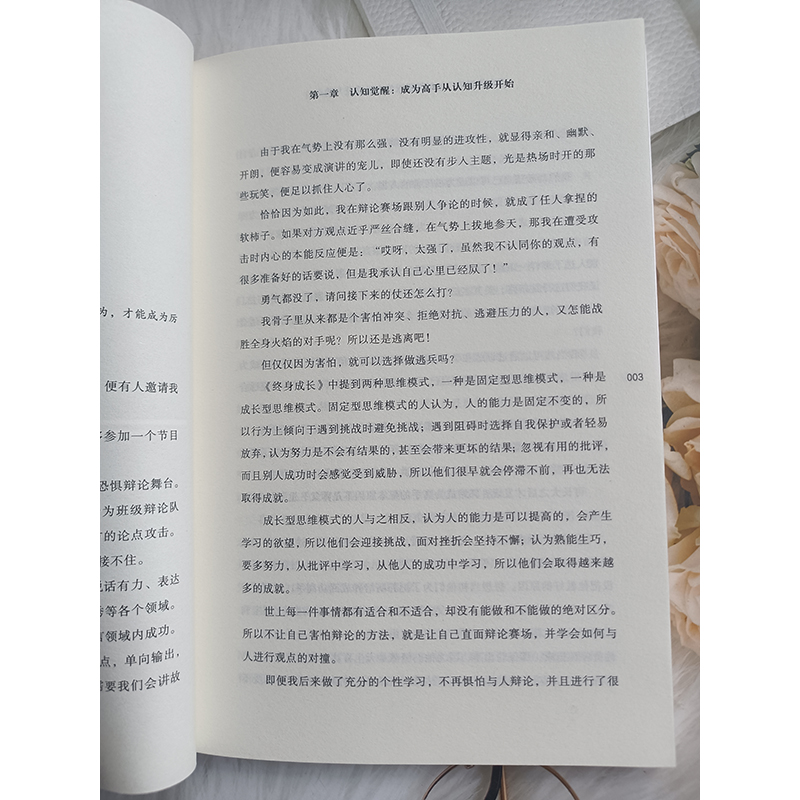 为，才能成为厉
便有人邀请我
参加一个节目
恐惧辩论舞台。
为班级辩论队
的论点攻击。
接不住。
说话有力、表达
等各个领域。
领域内成功。
点，单向输出，
需要我们会讲故
第一章 认知觉醒：成为高手从认知升级开始
由于我在气势上没有那么强，没有明显的进攻性，就显得亲和、幽默、
开朗，便容易变成演讲的宠儿，即使还没有步入主题，光是热场时开的那
些玩笑，便足以抓住人心了。
恰恰因为如此，我在辩论赛场跟别人争论的时候，就成了任人拿捏的
软柿子。如果对方观点近乎严丝合缝，在气势上拔地参天，那我在遭受攻
击时内心的本能反应便是：“哎呀，太强了，虽然我不认同你的观点，有
很多准备好的话要说，但是我承认自己心里已经㞞了！”
勇气都没了，请问接下来的仗还怎么打？
我骨子里从来都是个害怕冲突、拒绝对抗、逃避压力的人，又怎能战
胜全身火焰的对手呢？所以还是逃离吧！
但仅仅因为害怕，就可以选择做逃兵吗？
《终身成长》中提到两种思维模式，一种是固定型思维模式，一种是
成长型思维模式。固定型思维模式的人认为，人的能力是固定不变的，所
以行为上倾向于遇到挑战时避免挑战；遇到阻碍时选择自我保护或者轻易
放弃，认为努力是不会有结果的，甚至会带来更坏的结果；忽视有用的批评，
而且别人成功时会感觉受到威胁，所以他们很早就会停滞不前，再也无法
取得成就。
成长型思维模式的人与之相反，认为人的能力是可以提高的，会产生
学习的欲望，所以他们会迎接挑战，面对挫折会坚持不懈；认为熟能生巧，
要多努力，从批评中学习，从他人的成功中学习，所以他们会取得越来越
多的成就。
世上每一件事情都有适合和不适合，却没有能做和不能做的绝对区分。
所以不让自己害怕辩论的方法，就是让自己直面辩论赛场，并学会如何与
人进行观点的对撞。
即便我后来做了充分的个性学习，不再惧怕与人辩论，并且进行了很
003